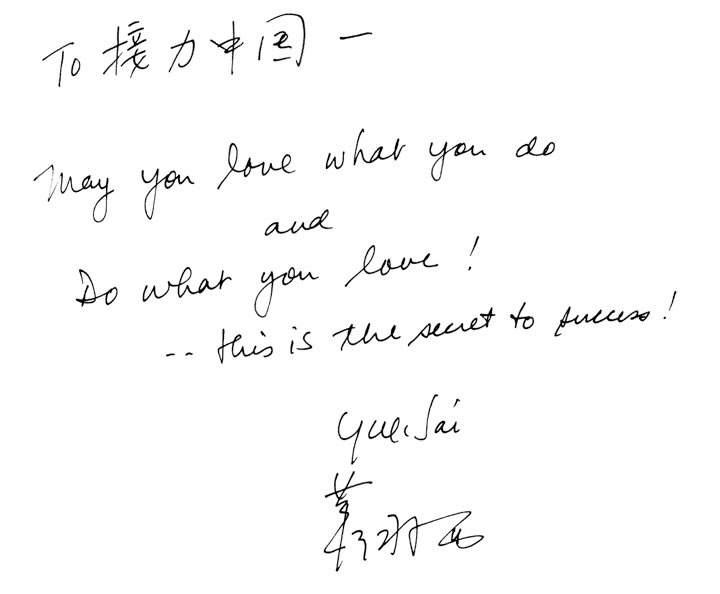 To 接力中国 —
May you love what you do
and
Do what you love!
-- this is the secret to success!
Yue-Sai